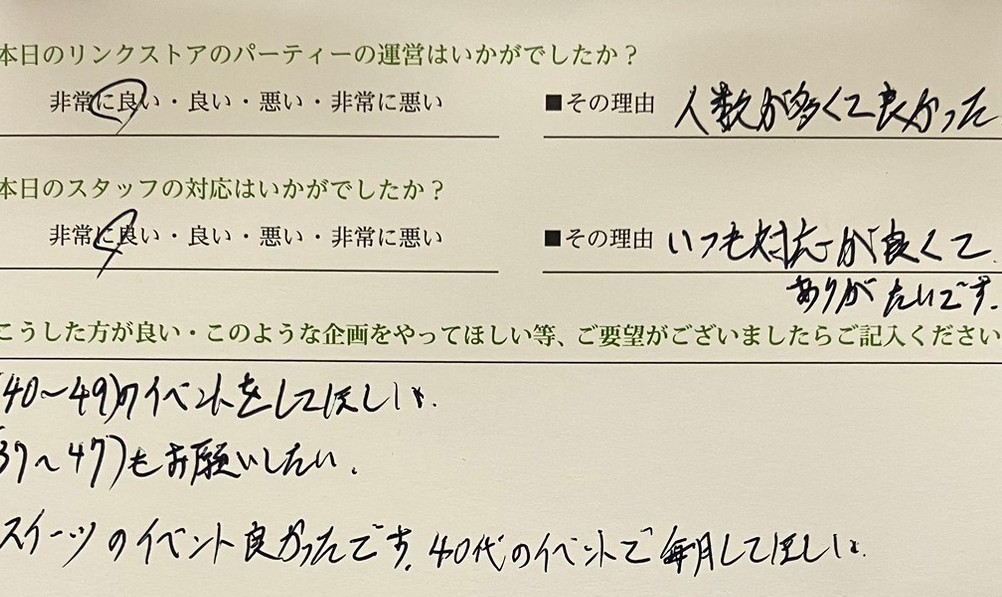 本日のリンクストアのパーティーの運営はいかがでしたか？
非常に良い・良い・悪い・非常に悪い ■その理由 人数が多くて良かった
本日のスタッフの対応はいかがでしたか？
非常に良い・良い・悪い・非常に悪い ■その理由 いつも対応が良くて
ありがたいです.
こうした方が良い・このような企画をやってほしい等、ご要望がございましたらご記入ください
(40～49)のイベントをしてほしい.
(37～47)もお願いしたい.
スイーツのイベント良かったです.40代のイベントで毎月してほしい.